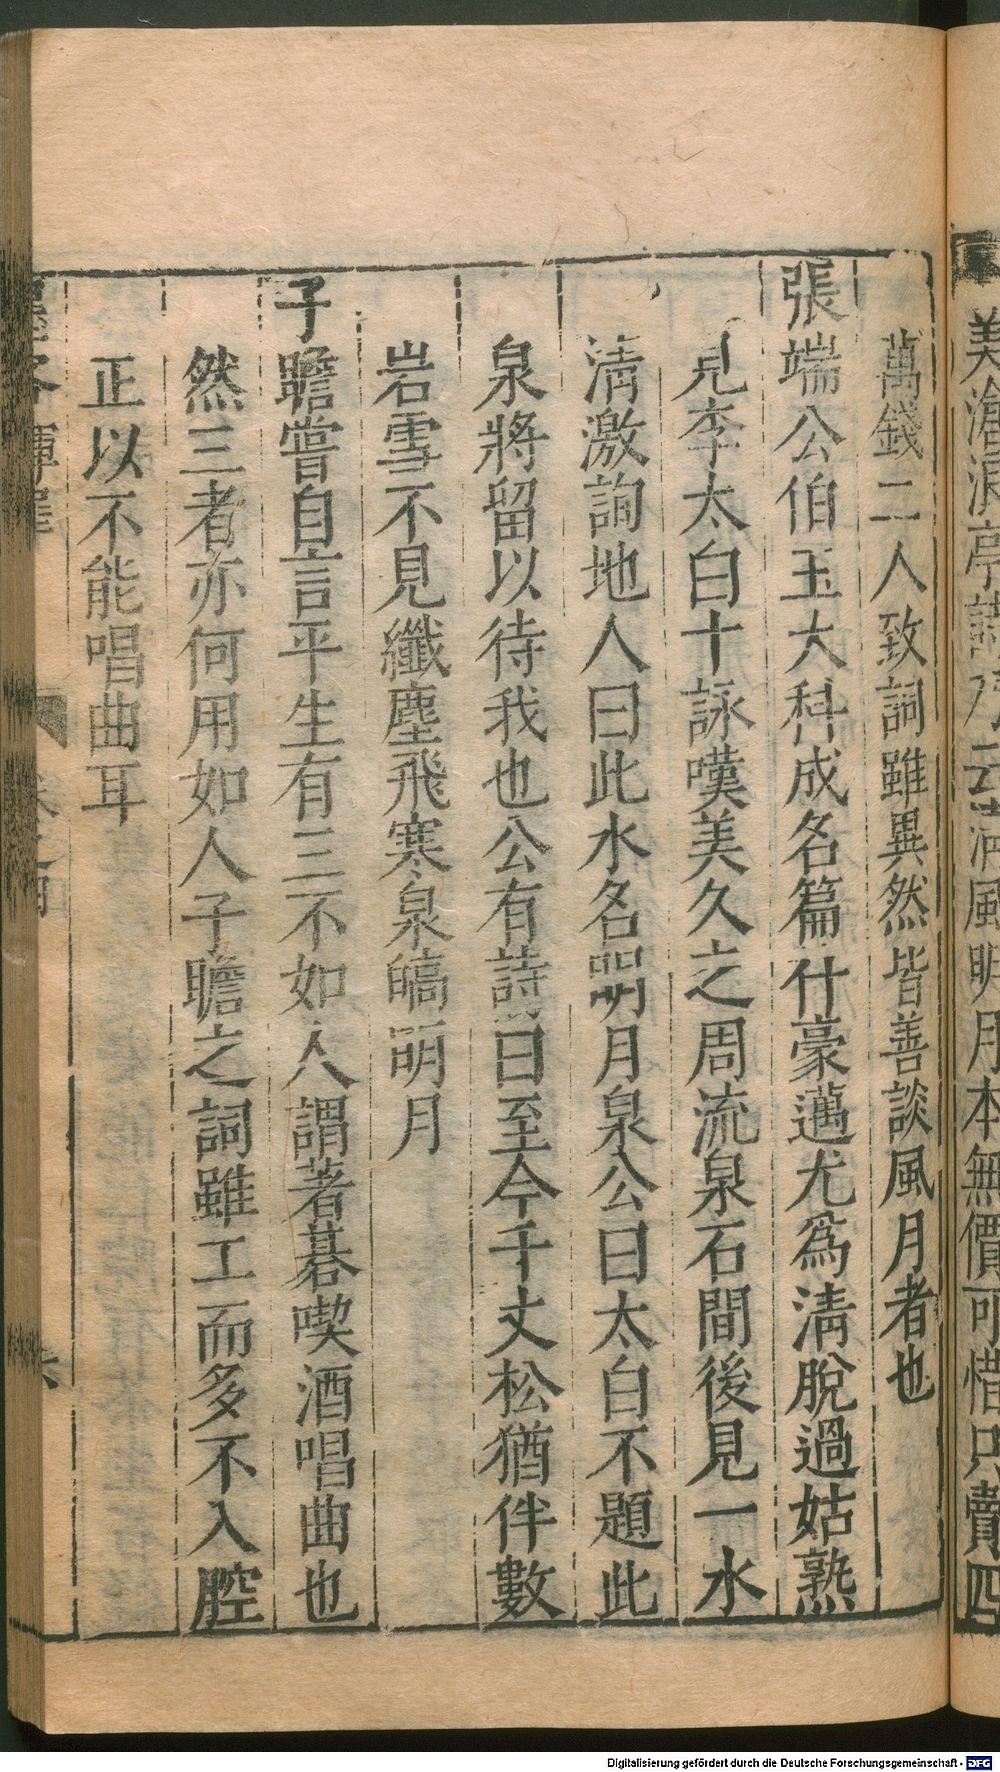 美滄浪亭詩乃云清風明月本無價可惜只賣四
萬錢二人致詞雖異然皆善談風月者也
張端公伯玉大科成名篇什豪邁尤爲清脫過姑熟
見李太白十詠嘆美久之周流泉石間後見一水
清激詢地人曰此水名明月泉公曰太白不題此
泉將留以待我也公有詩曰至今千丈松猶伴數
岩雪不見纖塵飛寒泉皜明月
子瞻嘗自言平生有三不如人謂著碁喫酒唱曲也
然三者亦何用如人子瞻之詞雖工而多不入腔
正以不能唱曲耳
墨客揮犀
卷之四
六
Digitalisierung gefördert durch die Deutsche Forschungsgemeinschaft - DFG